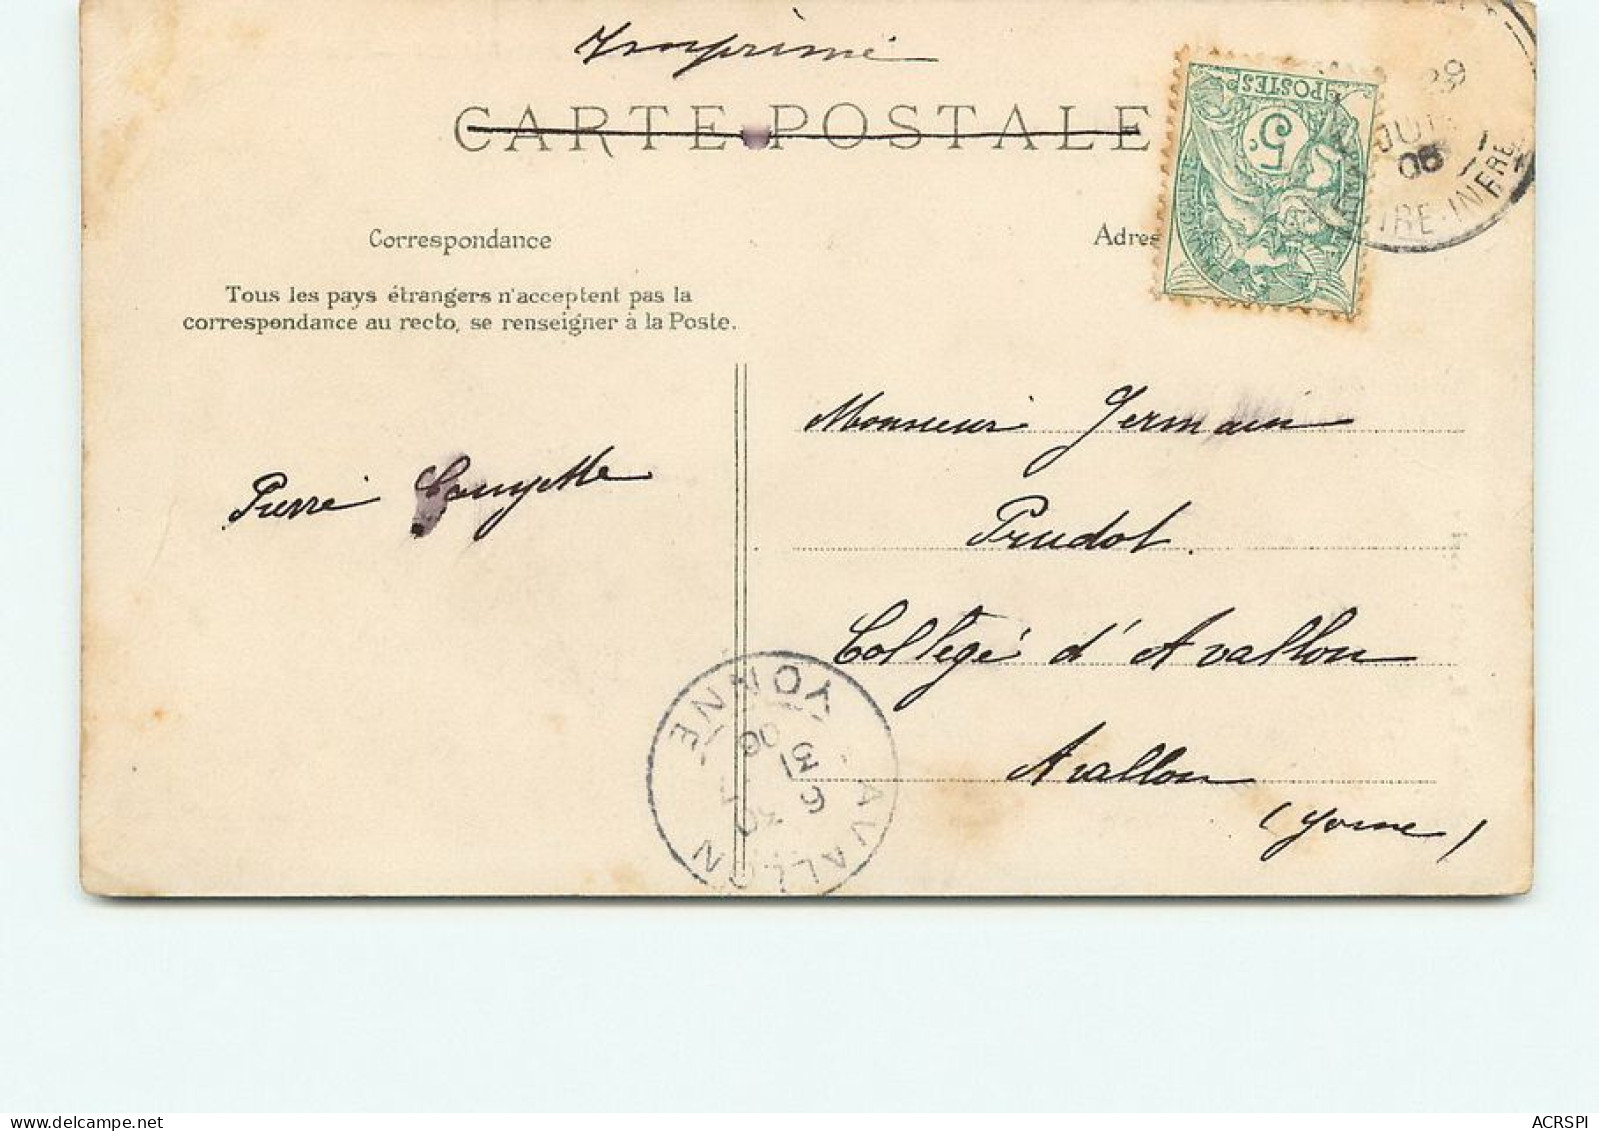 Imprimé
CARTE POSTALE
POSTES
5c
29
JUIL
06
LOIRE-INFRE
Correspondance
Adres
Tous les pays étrangers n'acceptent pas la
correspondance au recto, se renseigner à la Poste.
Monsieur Germain
Pierre
Prudot.
Collège d'Avallon
Avallon
(Yonne)
AVALLON
YONNE
6 30
31
06
ACRSPI